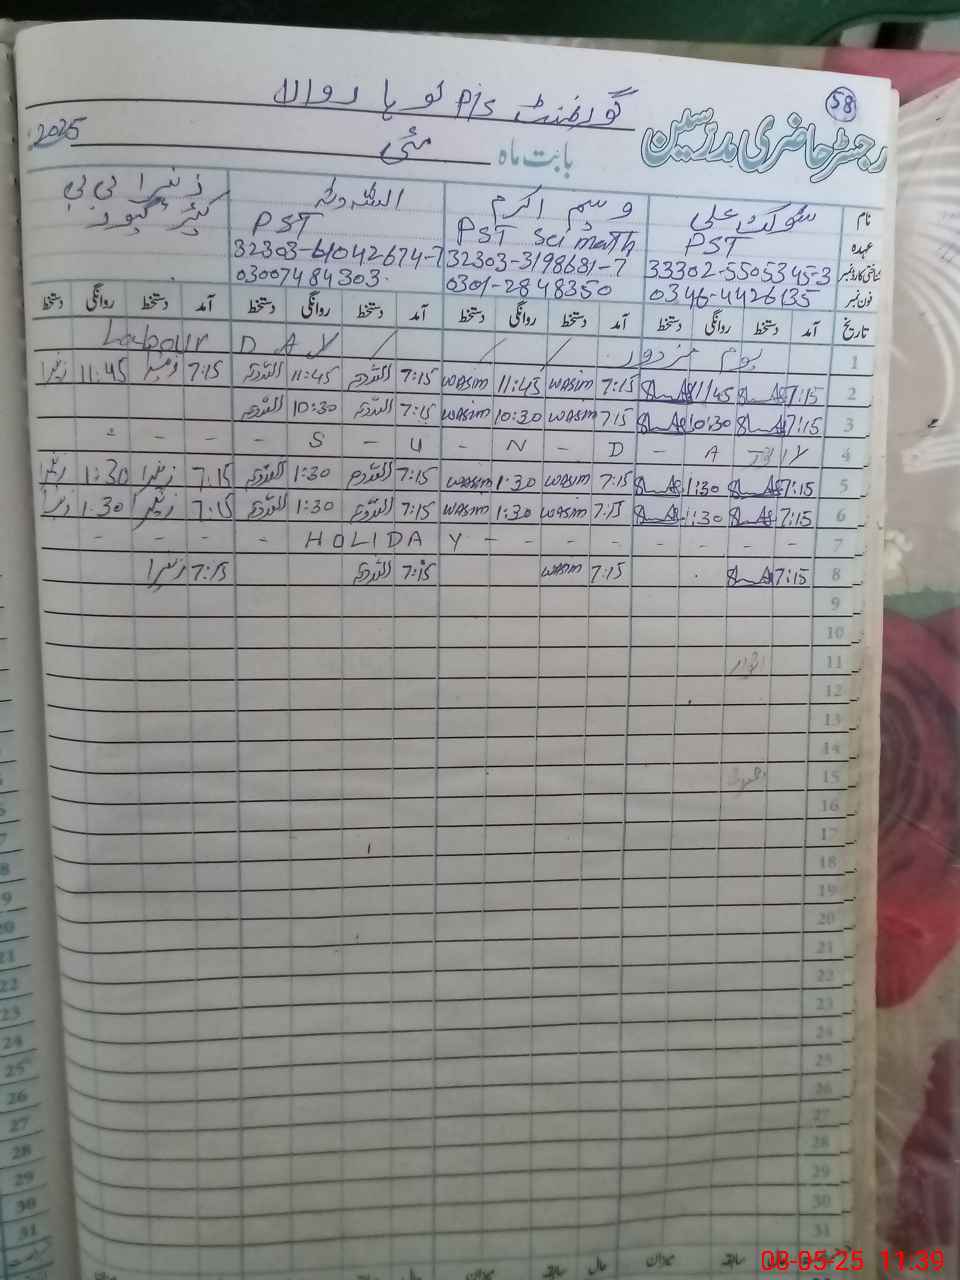 58
رجسٹر حاضری مدرسین
گورنمنٹ P/s لوہا روالا
بابت ماہ مئی 2025
نام شوکت علی وسیم اکرم اللہ دتہ زہرا بی بی
عہدہ PST PST Sci math PST کیئر گیور
شناختی کارڈ نمبر 33302-5505345-3 32303-3198681-7 32303-61042674-7
فون نمبر 0346-4426135 0301-2848350 03007484303
تاریخ آمد دستخط روانگی دستخط آمد دستخط روانگی دستخط آمد دستخط روانگی دستخط آمد دستخط روانگی دستخط
1 یوم مزدور / / / Labour DAY
2 7:15 11:45 7:15 wasim 11:45 wasim 7:15 اللہ دتہ 11:45 اللہ دتہ 7:15 زہرا 11:45 زہرا
3 7:15 10:30 7:15 wasim 10:30 wasim 7:15 اللہ دتہ 10:30 اللہ دتہ
4 - - - S - U - N - D - A - Y اتوار
5 7:15 1:30 7:15 wasim 1:30 wasim 7:15 اللہ دتہ 1:30 اللہ دتہ 7:15 زہرا 1:30 زہرا
6 7:15 1:30 7:15 wasim 1:30 wasim 7:15 اللہ دتہ 1:30 اللہ دتہ 7:15 زہرا 1:30 زہرا
7 - - - - HOLIDAY - - - - - - -
8 7:15 7:15 wasim 7:15 اللہ دتہ 7:15 زہرا
9
10
11 اتوار
12
13
14
15
16
17
18
19
20
21
22
23
24
25
26
27
28
29
30
31
میزان سابقہ حال میزان سابقہ حال میزان
08-05-25 11:39